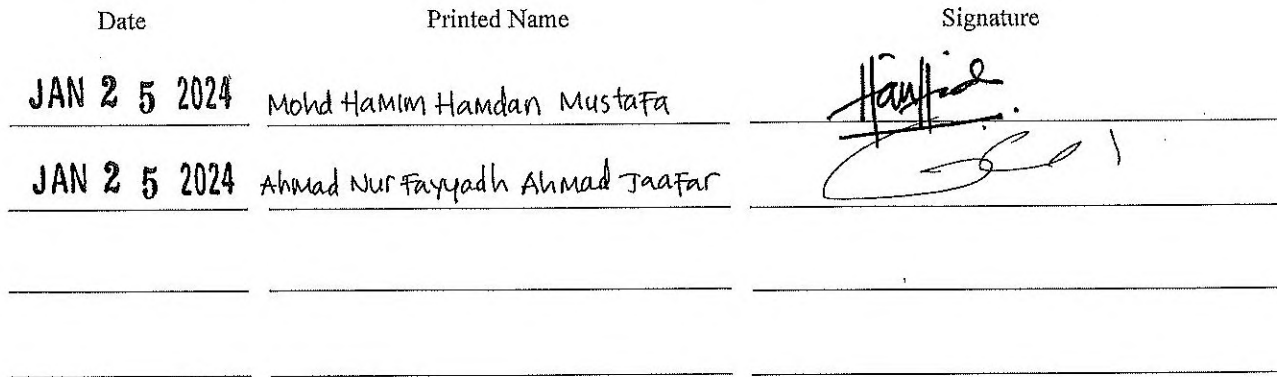 Date Printed Name Signature
JAN 25 2024 Mohd Hamim Hamdan Mustafa
JAN 25 2024 Ahmad Nur Fayyadh Ahmad Jaafar